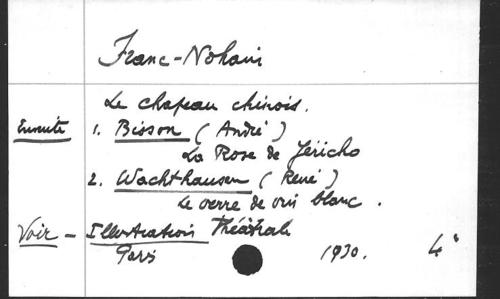 Franc-Nohain
Le chapeau chinois.
Ensuite 1. Bisson (André)
La Rose de Jéricho
2. Wachthausen (René)
Le verre de vin blanc.
Voir - Illustration Théâtrale
Paris 1930. 4°